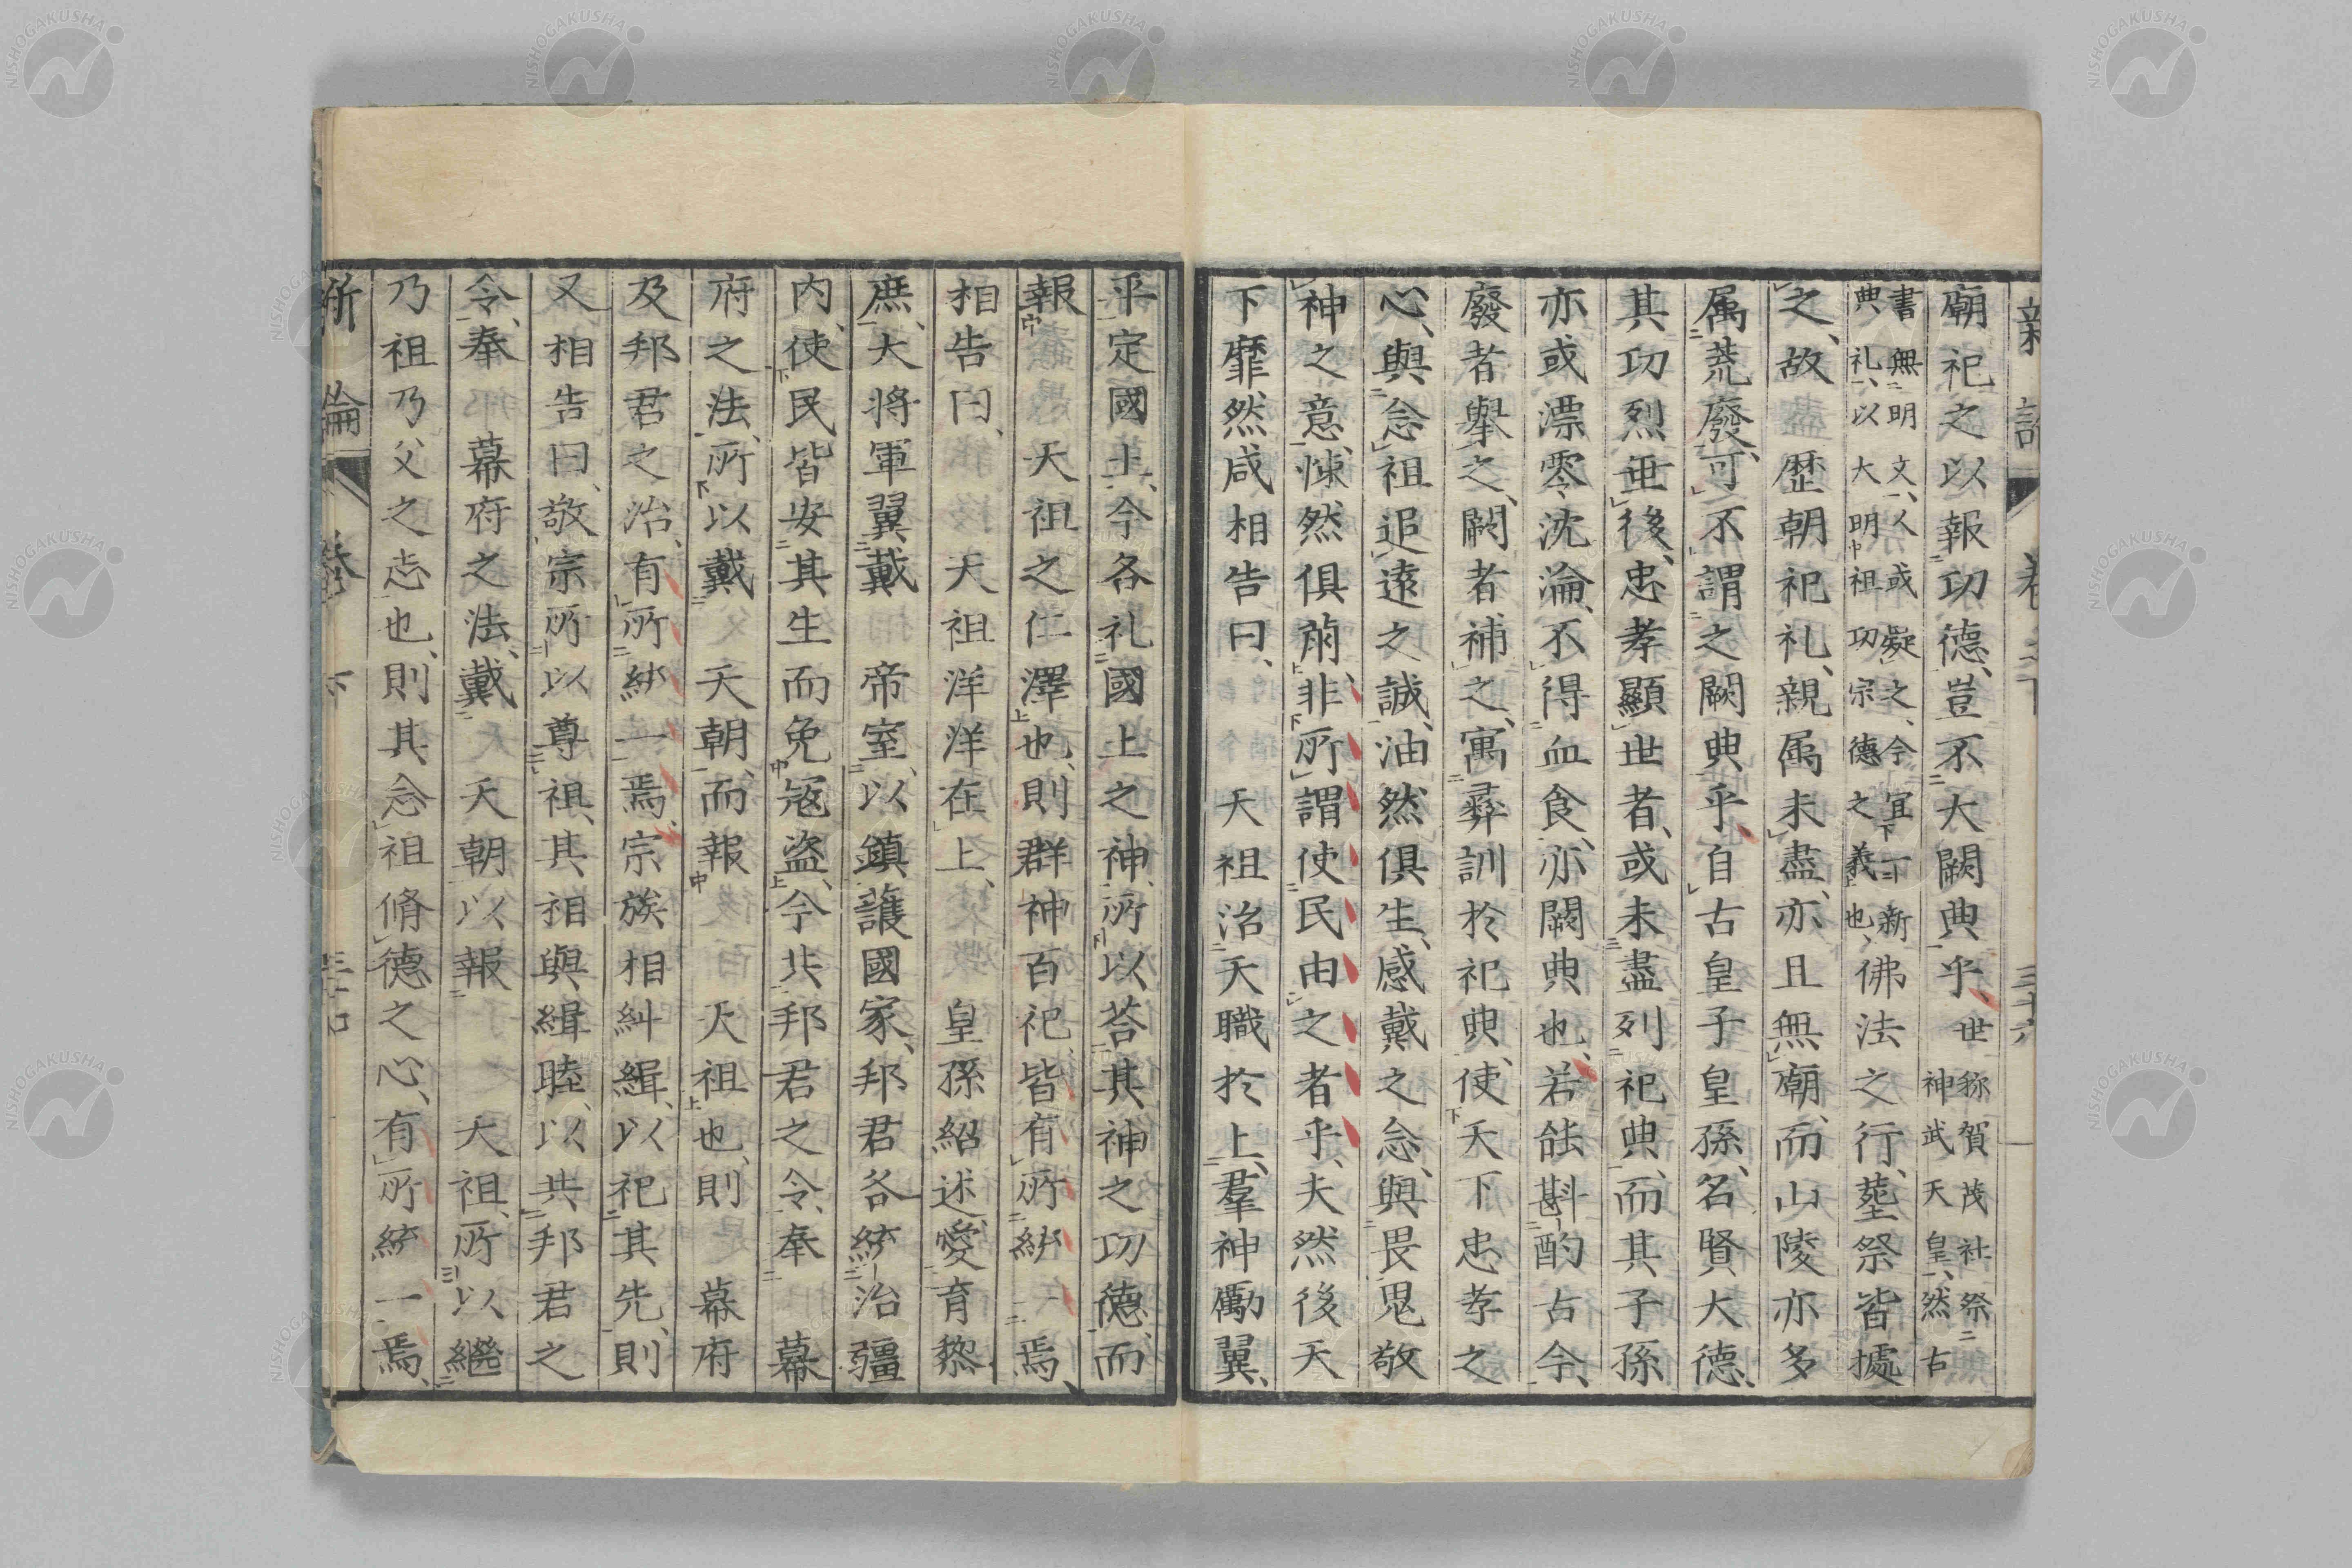 新論 卷之下 三十六
廟祀之以報功德、豈不大闕典乎、世称賀茂社祭神武天皇、然古
書無明文、人或疑之、今宜下丁新典礼、以大明祖功宗德之義也、佛法之行、塋祭皆據
之、故歷朝祀礼、親属未盡、亦且無廟、而山陵亦多
属荒廢、可不謂之闕典乎、自古皇子皇孫、名賢大德、
其功烈垂後、忠孝顯世者、或未盡列祀典、而其子孫
亦或漂零沈淪、不得血食、亦闕典也、若能斟酌古今、
廢者舉之、闕者補之、寓彝訓於祀典、使天下忠孝之
心、與念祖追遠之誠、油然俱生、感戴之念、與畏鬼敬
神之意、悚然俱萠、非所謂使民由之者乎、夫然後天
下靡然咸相告曰、天祖治天職於上、羣神勵翼、
平定國土、今各礼國上之神、所以荅其神之功德、而
報天祖之仁澤也、則群神百祀、皆有所統一焉、
相告曰、天祖洋洋在上、皇孫紹述、愛育黎
庶、大將軍翼戴帝室、以鎮護國家、邦君各統治疆
内、使民皆安其生而免寇盗、今共邦君之令、奉幕
府之法、所以戴天朝、而報天祖也、則幕府
及邦君之治、有所統一焉、宗族相糾緝、以祀其先、則
又相告曰、敬宗所以尊祖、其相與緝睦、以共邦君之
令、奉幕府之法、戴天朝以報天祖、所以繼
乃祖乃父之志也、則其念祖脩德之心、有所統一焉、
新論 卷 下